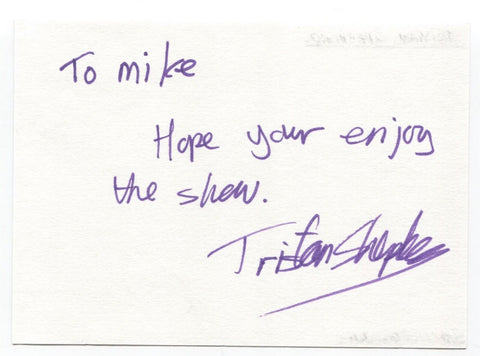 To mike
Hope your enjoy
the show.
Tristan